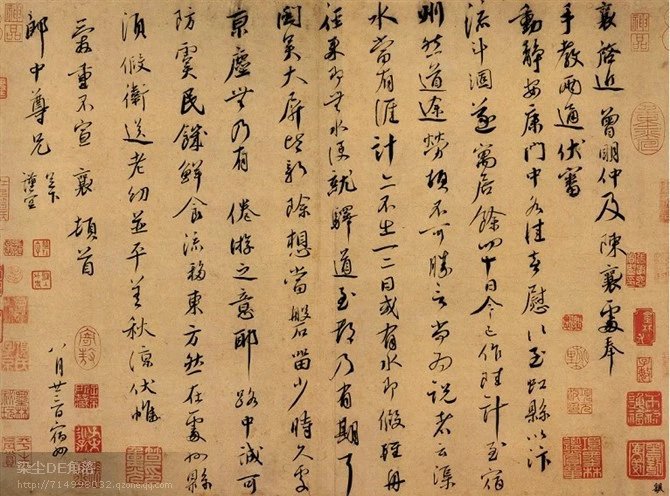 襄啓近曾明仲及陳襄處奉
手教兩通伏審
動靜安康門中各佳喜慰﹅至虹縣以汴
流斗涸遂寓居餘四十日今已作陸計至宿
州然道途勞頓不可勝言尚為說者云渠
水當有涯計亦不出一二日或有水即假輕舟
徑來即無水便就驛道至都乃有期耳
聞吳大屏皆新除想當磐留少時久處
京塵無乃有倦游之意耶路中諴可
防虞民饑鮮食流移東方然在處州縣
須假衛送老幼並平善秋涼伏惟
愛重不宣襄頓首
郎中尊兄左右
謹空
八月廿三日宿州
染尘DE角落
http://714998032.qzone.qq.com/